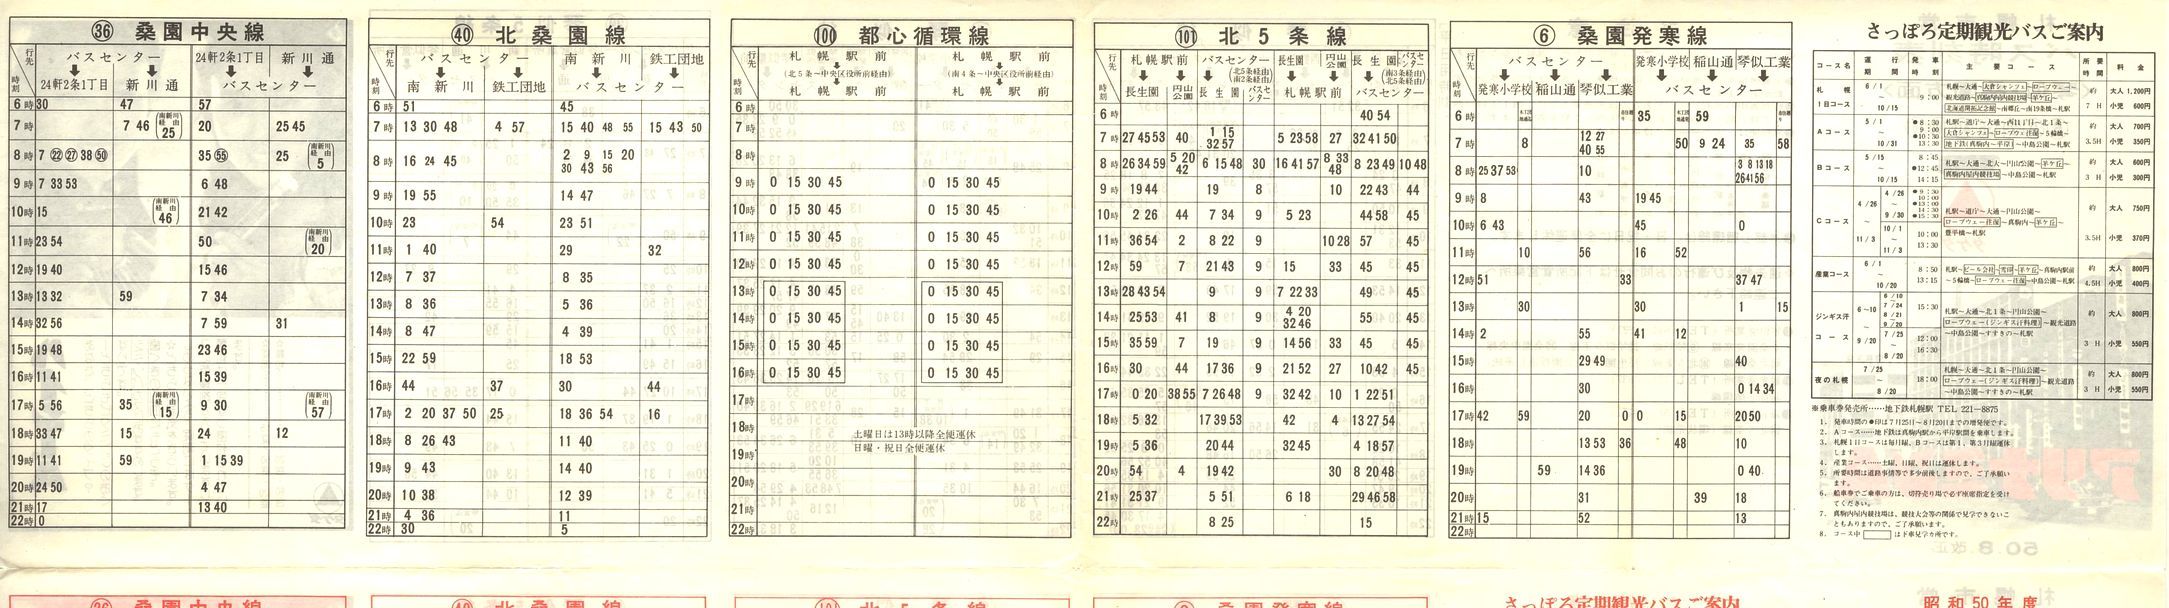 ㊱ 桑園中央線
行先 時刻 バスセンター 24軒2条1丁目 新川通
24軒2条1丁目 新川通 バスセンター
6時 30 47 57
7時 7 46 (南新川経由 25) 20 25 45
8時 7 ㉒ ㉗ 38 ㊿ 35 55 25 (南新川経由 5)
9時 7 33 53 6 48
10時 15 (南新川経由 46) 21 42
11時 23 54 50 (南新川経由 20)
12時 19 40 15 46
13時 13 32 59 7 34
14時 32 56 7 59 31
15時 19 48 23 46
16時 11 41 15 39
17時 5 56 35 (南新川経由 15) 9 30 (南新川経由 57)
18時 33 47 15 24 12
19時 11 41 59 1 15 39
20時 24 50 4 47
21時 17 13 40
22時 0
㊵ 北桑園線
行先 時刻 バスセンター 南新川 鉄工団地
南新川 鉄工団地 バスセンター
6時 51 45
7時 13 30 48 4 57 15 40 48 55 15 43 50
8時 16 24 45 2 9 15 20
30 43 56
9時 19 55 14 47
10時 23 54 23 51
11時 1 40 29 32
12時 7 37 8 35
13時 8 36 5 36
14時 8 47 4 39
15時 22 59 18 53
16時 44 37 30 44
17時 2 20 37 50 25 18 36 54 16
18時 8 26 43 11 40
19時 9 43 14 40
20時 10 38 12 39
21時 4 36 11
22時 30 5
(100) 都心循環線
行先 時刻 札幌駅前 札幌駅前
(北5条〜中央区役所前経由) (南4条〜中央区役所前経由)
札幌駅前 札幌駅前
6時
7時
8時
9時 0 15 30 45 0 15 30 45
10時 0 15 30 45 0 15 30 45
11時 0 15 30 45 0 15 30 45
12時 0 15 30 45 0 15 30 45
13時 0 15 30 45 0 15 30 45
14時 0 15 30 45 0 15 30 45
15時 0 15 30 45 0 15 30 45
16時 0 15 30 45 0 15 30 45
17時
18時 土曜日は13時以降全便運休
19時 日曜・祝日全便運休
20時
21時
22時
(101) 北5条線
行先 時刻 札幌駅前 バスセンター (北5条経由 南2条経由) 長生園 円山公園 長生園 バスセンター (南3条経由 北5条経由)
長生園 円山公園 長生園 バスセンター 札幌駅前 バスセンター
6時 40 54
7時 27 45 53 40 1 15 32 57 5 23 58 27 32 41 50
8時 26 34 59 5 20 42 6 15 48 30 16 41 57 8 33 48 8 23 49 10 48
9時 19 44 19 8 10 22 43 44
10時 2 26 44 7 34 9 5 23 44 58 45
11時 36 54 2 8 22 9 10 28 57 45
12時 59 7 21 43 9 15 33 45 45
13時 28 43 54 9 9 7 22 33 49 45
14時 25 53 41 8 9 4 20 32 46 55 45
15時 35 59 7 19 9 14 56 33 45 45
16時 30 44 17 36 9 21 52 27 10 42 45
17時 0 20 38 55 7 26 48 9 32 42 10 1 22 51
18時 5 32 17 39 53 42 4 13 27 54
19時 5 36 20 44 32 45 4 18 57
20時 54 4 19 42 30 8 20 48
21時 25 37 5 51 6 18 29 46 58
22時 8 25 15
⑥ 桑園発寒線
行先 時刻 バスセンター 発寒小学校 稲山通 琴似工業
発寒小学校 稲山通 琴似工業 バスセンター
6時 35 59
7時 8 12 27 40 55 50 9 24 35 58
8時 25 37 53 10 3 8 13 18 26 41 56
9時 8 43 19 45
10時 6 43 45 0
11時 10 56 16 52
12時 51 33 37 47
13時 30 30 1 15
14時 2 55 41 12
15時 29 49 40
16時 30 0 14 34
17時 42 59 20 0 0 15 20 50
18時 13 53 36 48 10
19時 59 14 36 0 40
20時 31 39 18
21時 15 52 13
22時
さっぽろ定期観光バスご案内
コース名 運行期間 発車時刻 主要コース 所要時間 料金
札幌1日コース 6/1〜10/15 9:00 約7H 大人1,200円 小児600円
Aコース 5/1〜10/31 ●8:30 9:00 ●10:30 13:30 札駅〜道庁〜大通〜西11丁目〜北1条〜大倉シャンツェ〜ロープウェー〜5輪橋〜地下鉄(真駒内〜平岸)〜中島公園〜札駅 約3.5H 大人700円 小児350円
Bコース 5/15〜10/15 8:45 ●12:45 14:15 札駅〜大通〜北大〜円山公園〜羊ケ丘〜真駒内屋内競技場〜中島公園〜札駅 約3H 大人600円 小児300円
Cコース 4/26〜11/3 札駅〜道庁〜大通〜円山公園〜ロープウェー往復〜真駒内〜羊ケ丘〜豊平橋〜札駅 約3.5H 大人750円 小児370円
産業コース 6/1〜10/20 8:50 13:15 札駅〜ビール会社〜雪印〜羊ケ丘〜真駒内駅前〜5輪橋〜ロープウェー往復〜中島公園〜札駅 約4.5H 大人800円 小児400円
ジンギス汗コース 6〜10〜9/20 15:30 12:00 16:30 札駅〜大通〜北1条〜円山公園〜ロープウェー(ジンギス汗料理)〜観光道路〜中島公園〜すすきの〜札駅 約3H 大人800円 小児550円
夜の札幌 7/25〜8/20 18:00 札幌〜大通〜北1条〜円山公園〜ロープウェー(ジンギス汗料理)〜観光道路〜中島公園〜すすきの〜札駅 約3H 大人800円 小児550円
※乗車券発売所……地下鉄札幌駅 TEL 221-8875
1. 発車時間の●印は7月25日〜8月20日までの増発便です。
2. Aコース……地下鉄は真駒内駅から平岸駅間を乗車します。
3. 札幌1日コースは毎月曜、Bコースは第1、第3月曜運休します。
4. 産業コース……土曜、日曜、祝日は運休します。
5. 所要時間は道路事情等で多少前後しますので、ご了承願います。
6. 船車券でご乗車の方は、切符売り場で必ず座席指定を受けてください。
7. 真駒内屋内競技場は、競技大会等の関係で見学できないこともありますので、ご了承願います。
8. コース中 は下車見学カ所です。
桑園中央線
北桑園線
北5条線
桑園発寒線
さっぽろ定期観光バスご案内
昭和50年度